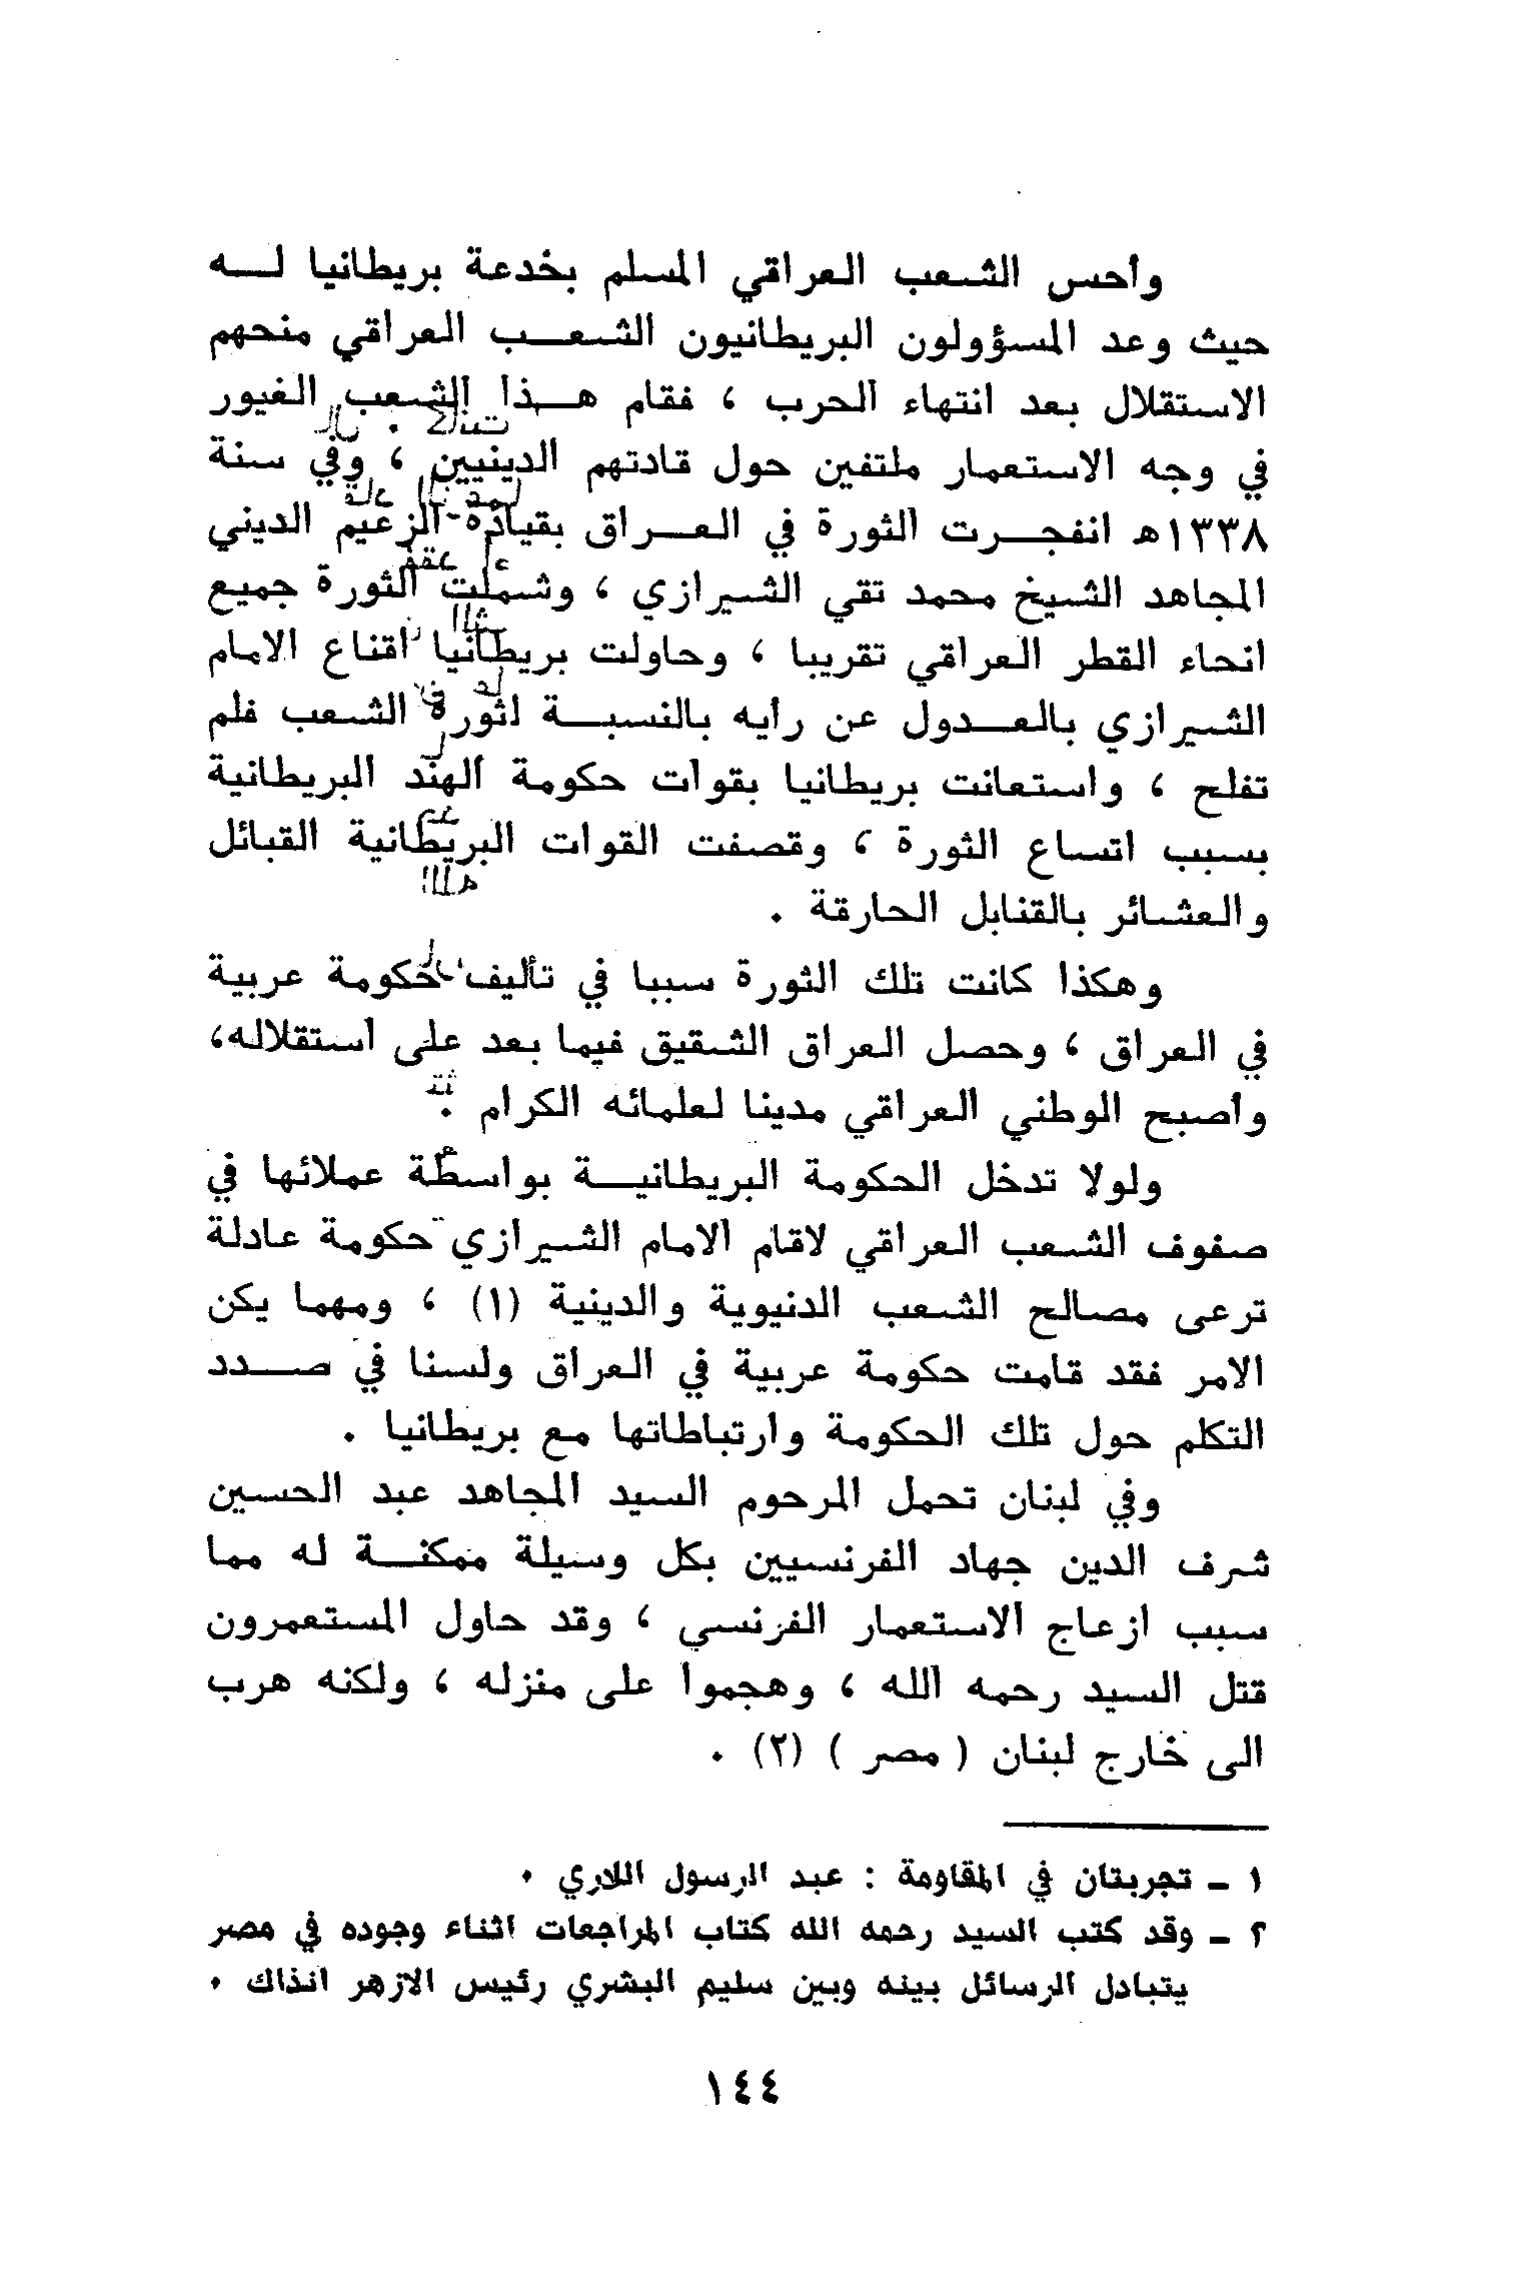 وأحس الشعب العراقي المسلم بخدعة بريطانيا له
حيث وعد المسؤولون البريطانيون الشعب العراقي منحهم
الاستقلال بعد انتهاء الحرب ، فقام هذا الشعب الغيور
في وجه الاستعمار ملتفين حول قادتهم الدينيين ، وفي سنة
١٣٣٨هـ انفجرت الثورة في العراق بقيادة الزعيم الديني
المجاهد الشيخ محمد تقي الشيرازي ، وشملت الثورة جميع
انحاء القطر العراقي تقريبا ، وحاولت بريطانيا اقناع الامام
الشيرازي بالعدول عن رأيه بالنسبة لثورة الشعب فلم
تفلح ، واستعانت بريطانيا بقوات حكومة الهند البريطانية
بسبب اتساع الثورة ، وقصفت القوات البريطانية القبائل
والعشائر بالقنابل الحارقة .
وهكذا كانت تلك الثورة سببا في تأليف حكومة عربية
في العراق ، وحصل العراق الشقيق فيما بعد على استقلاله،
وأصبح الوطني العراقي مدينا لعلمائه الكرام .
ولولا تدخل الحكومة البريطانية بواسطة عملائها في
صفوف الشعب العراقي لاقام الامام الشيرازي حكومة عادلة
ترعى مصالح الشعب الدنيوية والدينية (١) ، ومهما يكن
الامر فقد قامت حكومة عربية في العراق ولسنا في صدد
التكلم حول تلك الحكومة وارتباطاتها مع بريطانيا .
وفي لبنان تحمل المرحوم السيد المجاهد عبد الحسين
شرف الدين جهاد الفرنسيين بكل وسيلة ممكنة له مما
سبب ازعاج الاستعمار الفرنسي ، وقد حاول المستعمرون
قتل السيد رحمه الله ، وهجموا على منزله ، ولكنه هرب
الى خارج لبنان ( مصر ) (٢) .
١ - تجربتان في المقاومة : عبد الرسول اللاري .
٢ - وقد كتب السيد رحمه الله كتاب المراجعات اثناء وجوده في مصر
يتبادل الرسائل بينه وبين سليم البشري رئيس الازهر انذاك .
١٤٤